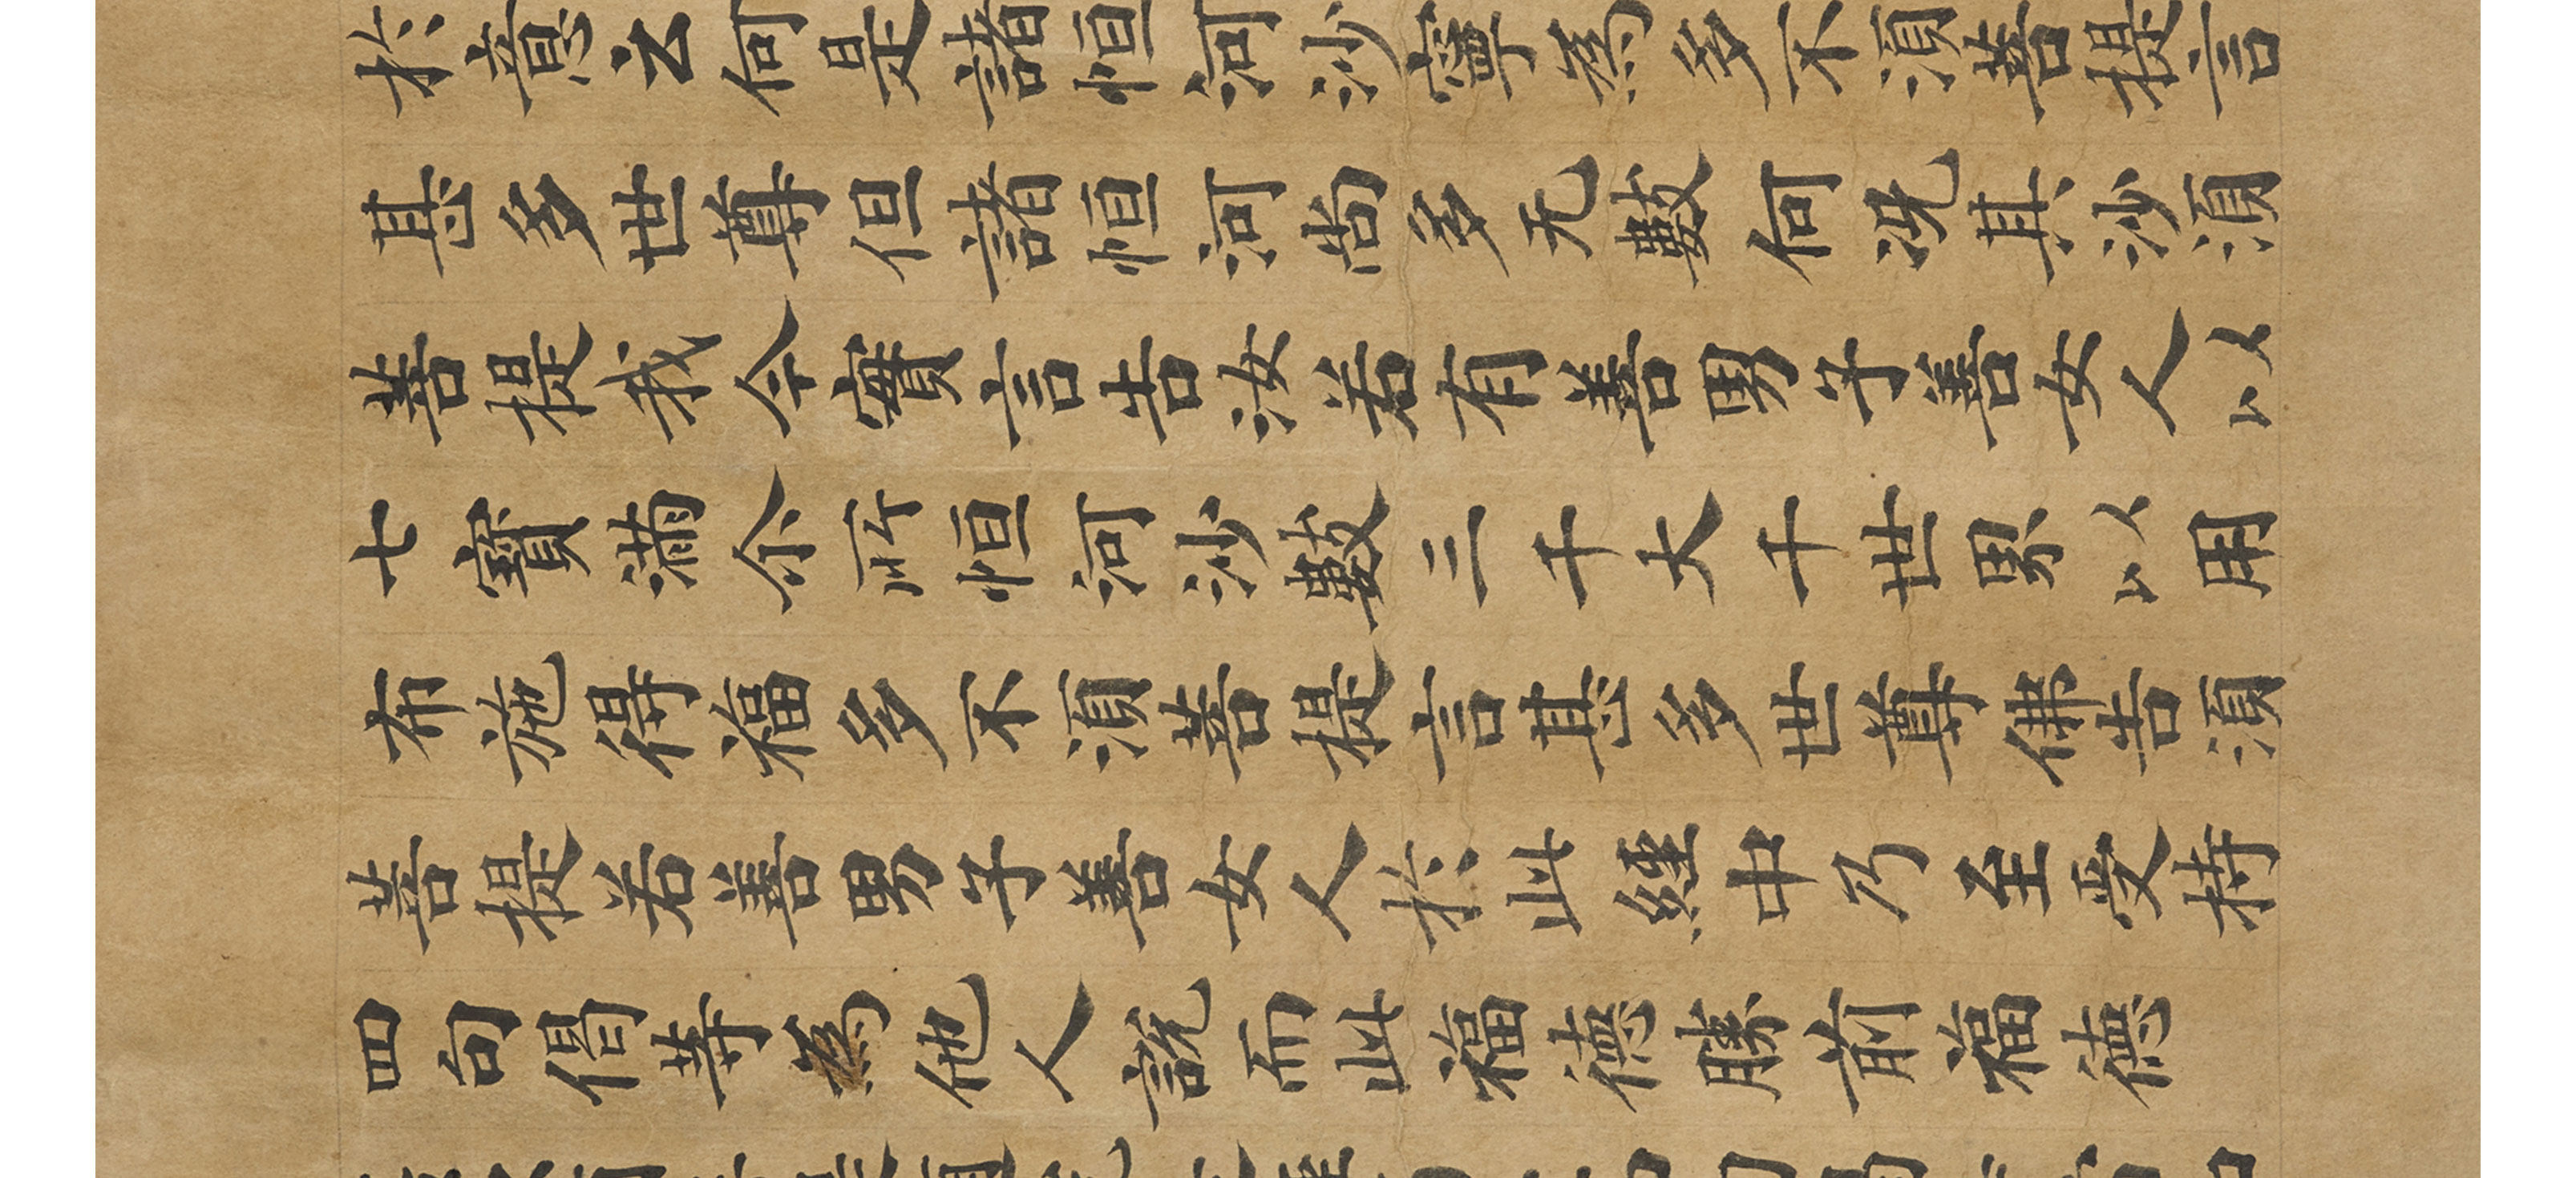 於意云何是諸恒河沙寧為多不須菩提言
甚多世尊但諸恒河尚多无數何況其沙須
菩提我今實言告汝若有善男子善女人以
七寶滿尒所恒河沙數三千大千世界以用
布施得福多不須菩提言甚多世尊佛告須
菩提若善男子善女人於此經中乃至受持
四句偈等為他人說而此福德勝前福德